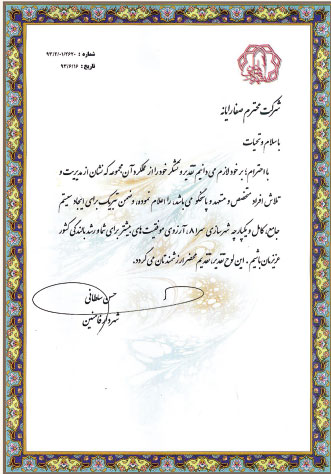 شماره : ۹۳/۲/۰۱/۲۶۲۰
تاریخ : ۹۳/۶/۱۶
شرکت محترم صفارایانه
باسلام و تحیات
با احترام؛ بر خود لازم می دانیم تقدیر و تشکر خود را از عملکرد آن مجموعه که نشان از مدیریت و
تلاش افراد متخصص و متعهد و پاسخگو می باشد، را اعلام نموده، و ضمن تبریک برای ایجاد سیستم
جامع، کامل و یکپارچه شهرسازی سرا۸، آرزوی موفقیت های بیشتر برای شما و رشد و بالندگی کشور
عزیزمان باشیم. این لوح تقدیر، تقدیم محضر ارزشمندتان می گردد.
حسن سلطانی
شهردار فامنین